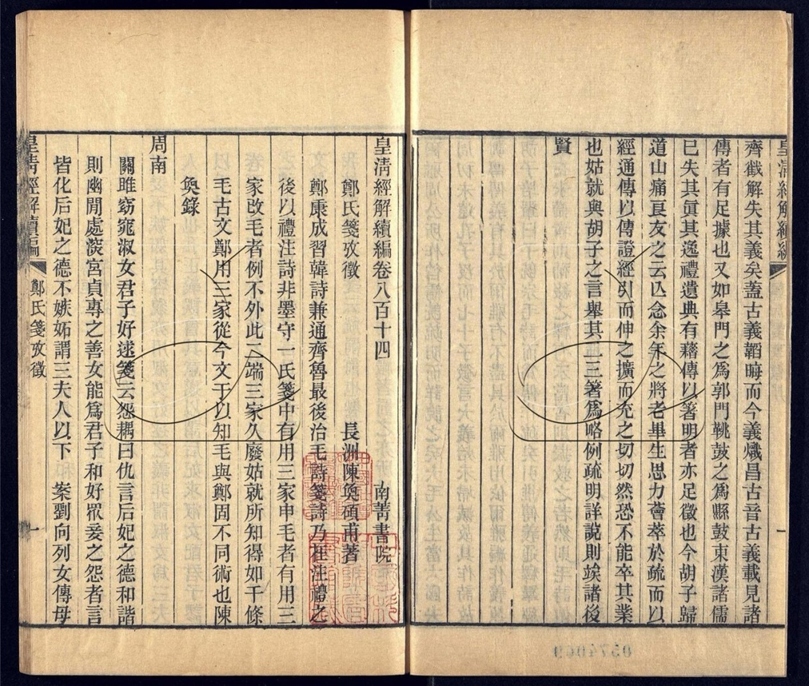 皇清經解續編
齊戳解失其義矣蓋古義韜晦而今義熾昌古音古義載見諸
傳者有足據也又如皋門之爲郭門鼗鼓之爲縣鼓東漢諸儒
已失其眞其逸禮遺典有藉傳以箸明者亦足徵也今胡子歸
道山痛良友之云亾念余年之將老畢生思力薈萃於疏而以
經通傳以傳證經引而伸之擴而充之切切然恐不能卒其業
也姑就與胡子之言舉其一二箸爲略例疏明詳說則竢諸後
賢
一
皇清經解續編卷八百十四
南菁書院
鄭氏箋攷徵
長洲陳奐碩甫著
鄭康成習韓詩兼通齊魯最後治毛詩箋詩乃在注禮之
後以禮注詩非墨守一氏箋中有用三家申毛者有用三
家改毛者例不外此二端三家久廢姑就所知得如干條
毛古文鄭用三家從今文于以知毛與鄭固不同術也陳
奐錄
周南
關雎窈窕淑女君子好逑箋云怨耦曰仇言后妃之德和諧
則幽閒處深宮貞專之善女能爲君子和好眾妾之怨者言
皆化后妃之德不嫉妬謂三夫人以下 案劉向列女傳母
皇清經解續編
鄭氏箋攷徵
一